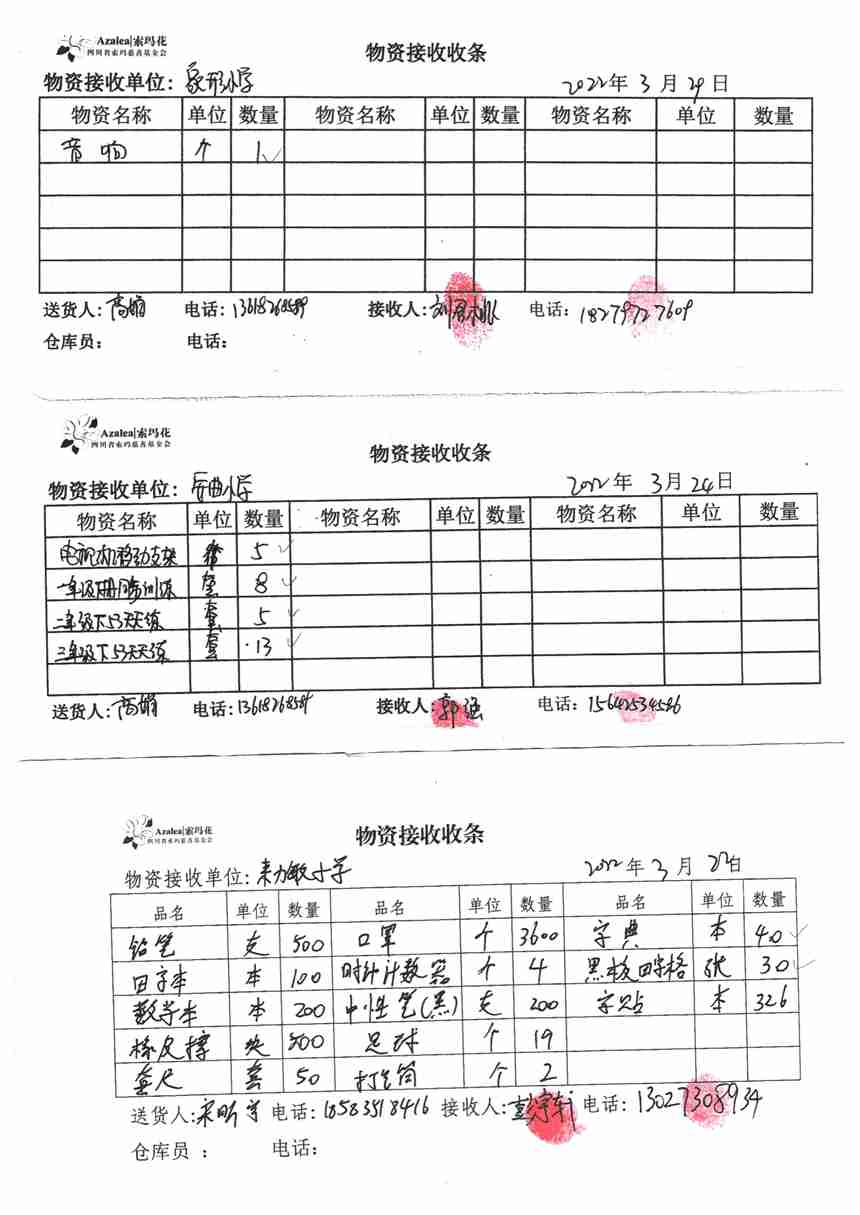 Azalea|索玛花
四川省索玛慈善基金会
物资接收收条
物资接收单位：象形小学 2022年 3月 29日
物资名称 单位 数量 物资名称 单位 数量 物资名称 单位 数量
音响 个 1
送货人：高娟 电话：13618268589 接收人：刘 电话：18279727609
仓库员： 电话：
Azalea|索玛花
四川省索玛慈善基金会
物资接收收条
物资接收单位：曲小学 2022年 3月 24日
物资名称 单位 数量 物资名称 单位 数量 物资名称 单位 数量
电视机移动支架 套 5
一年级下册 训练 套 8
二年级下53天天练 套 5
三年级下53天天练 套 13
送货人：高娟 电话：1361826858 接收人：郭强 电话：15642534586
Azalea|索玛花
四川省索玛慈善基金会
物资接收收条
物资接收单位：来力敏小学 2022年 3月 23日
品名 单位 数量 品名 单位 数量 品名 单位 数量
铅笔 支 500 口罩 个 3600 字典 本 40
田字本 本 100 时针计数器 个 4 黑板田字格 张 30
数学本 本 200 中性笔(黑) 支 200 字贴 本 326
橡皮擦 块 500 足球 个 19
套尺 套 50 打气筒 个 2
送货人：宋昕宇 电话：18583518416 接收人：彭宇轩 电话：13027308934
仓库员 ： 电话：